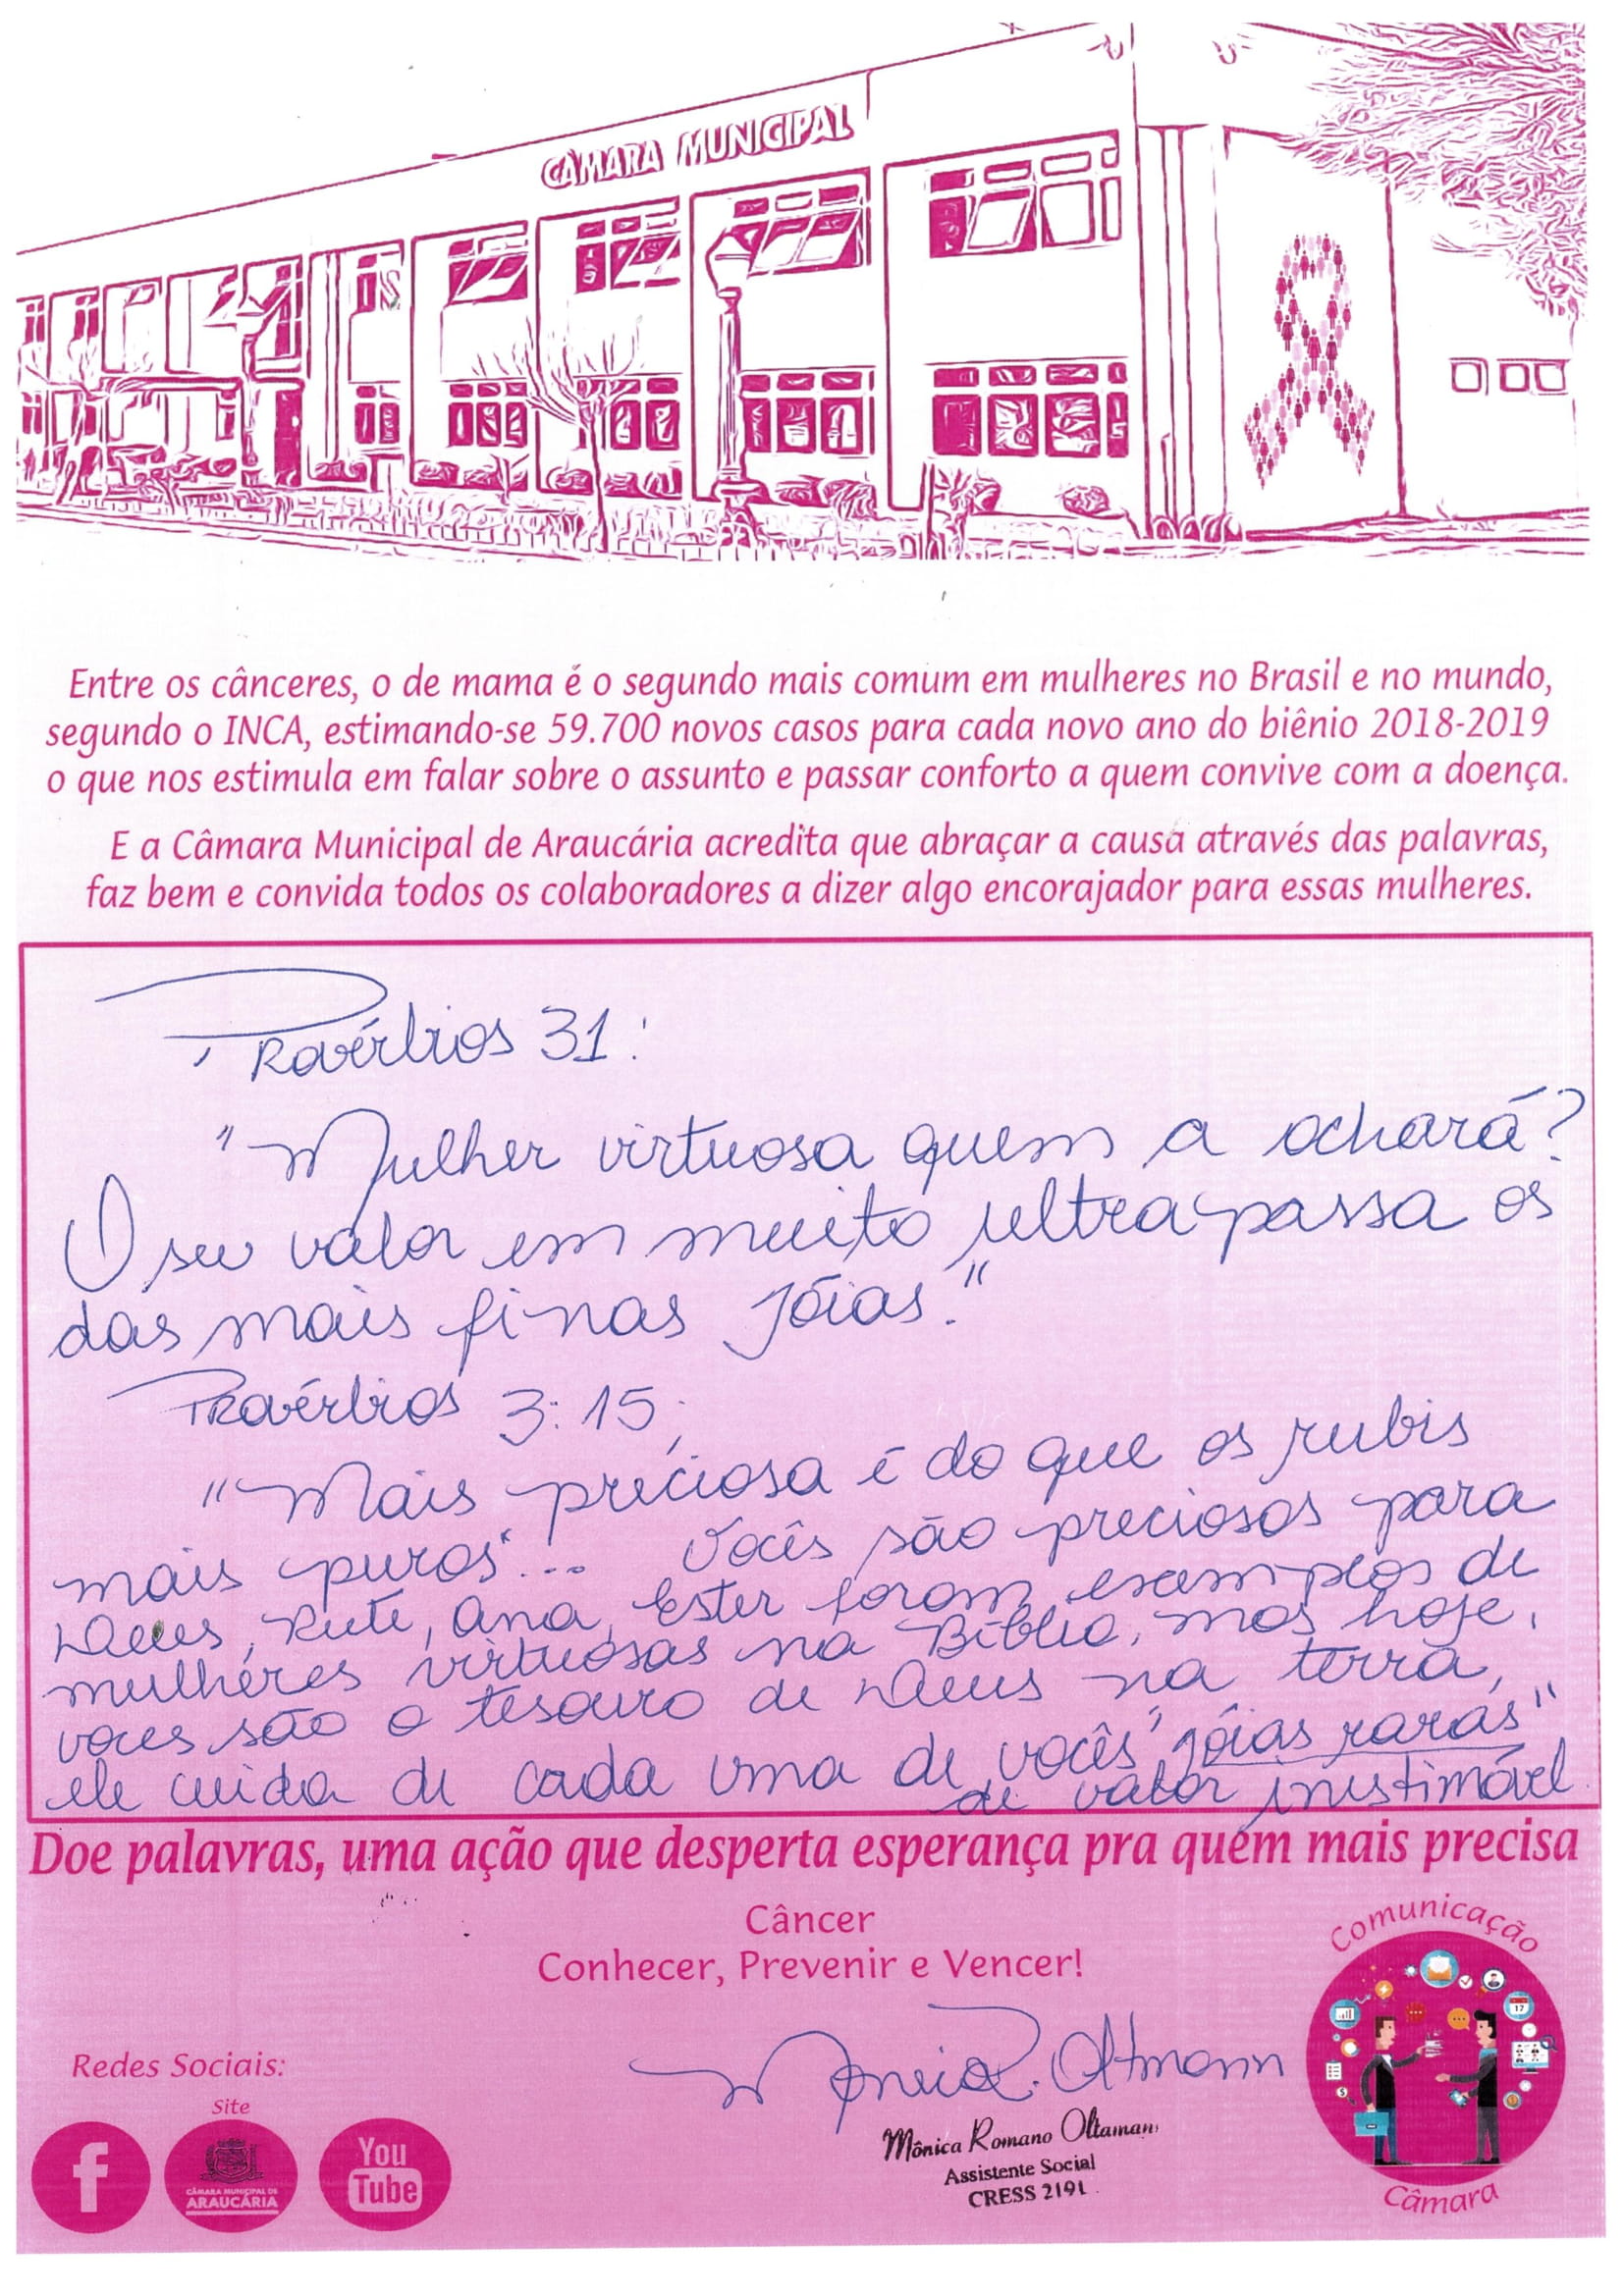 CÂMARA MUNICIPAL
Entre os cânceres, o de mama é o segundo mais comum em mulheres no Brasil e no mundo,
segundo o INCA, estimando-se 59.700 novos casos para cada novo ano do biênio 2018-2019
o que nos estimula em falar sobre o assunto e passar conforto a quem convive com a doença.
E a Câmara Municipal de Araucária acredita que abraçar a causa através das palavras,
faz bem e convida todos os colaboradores a dizer algo encorajador para essas mulheres.
Provérbios 31:
"Mulher virtuosa quem a achará?
O seu valor em muito ultrapassa os
das mais finas Jóias."
Provérbios 3:15;
"Mais preciosa é do que os rubis
mais puros"... Vocês são preciosos para
Deus, Rute, Ana, Ester foram exemplos de
mulheres virtuosas na Bíblia, mas hoje,
voces são o tesouro de Deus na terra,
ele cuida de cada uma de vocês "jóias raras"
de valor inestimável.
Doe palavras, uma ação que desperta esperança pra quem mais precisa
Câncer
Conhecer, Prevenir e Vencer!
Comunicação
17
Câmara
Mônica R. Oltmann
Mônica Romano Oltaman
Assistente Social
CRESS 2191
Redes Sociais:
Site
f
CÂMARA MUNICIPAL DE
ARAUCÁRIA
You
Tube